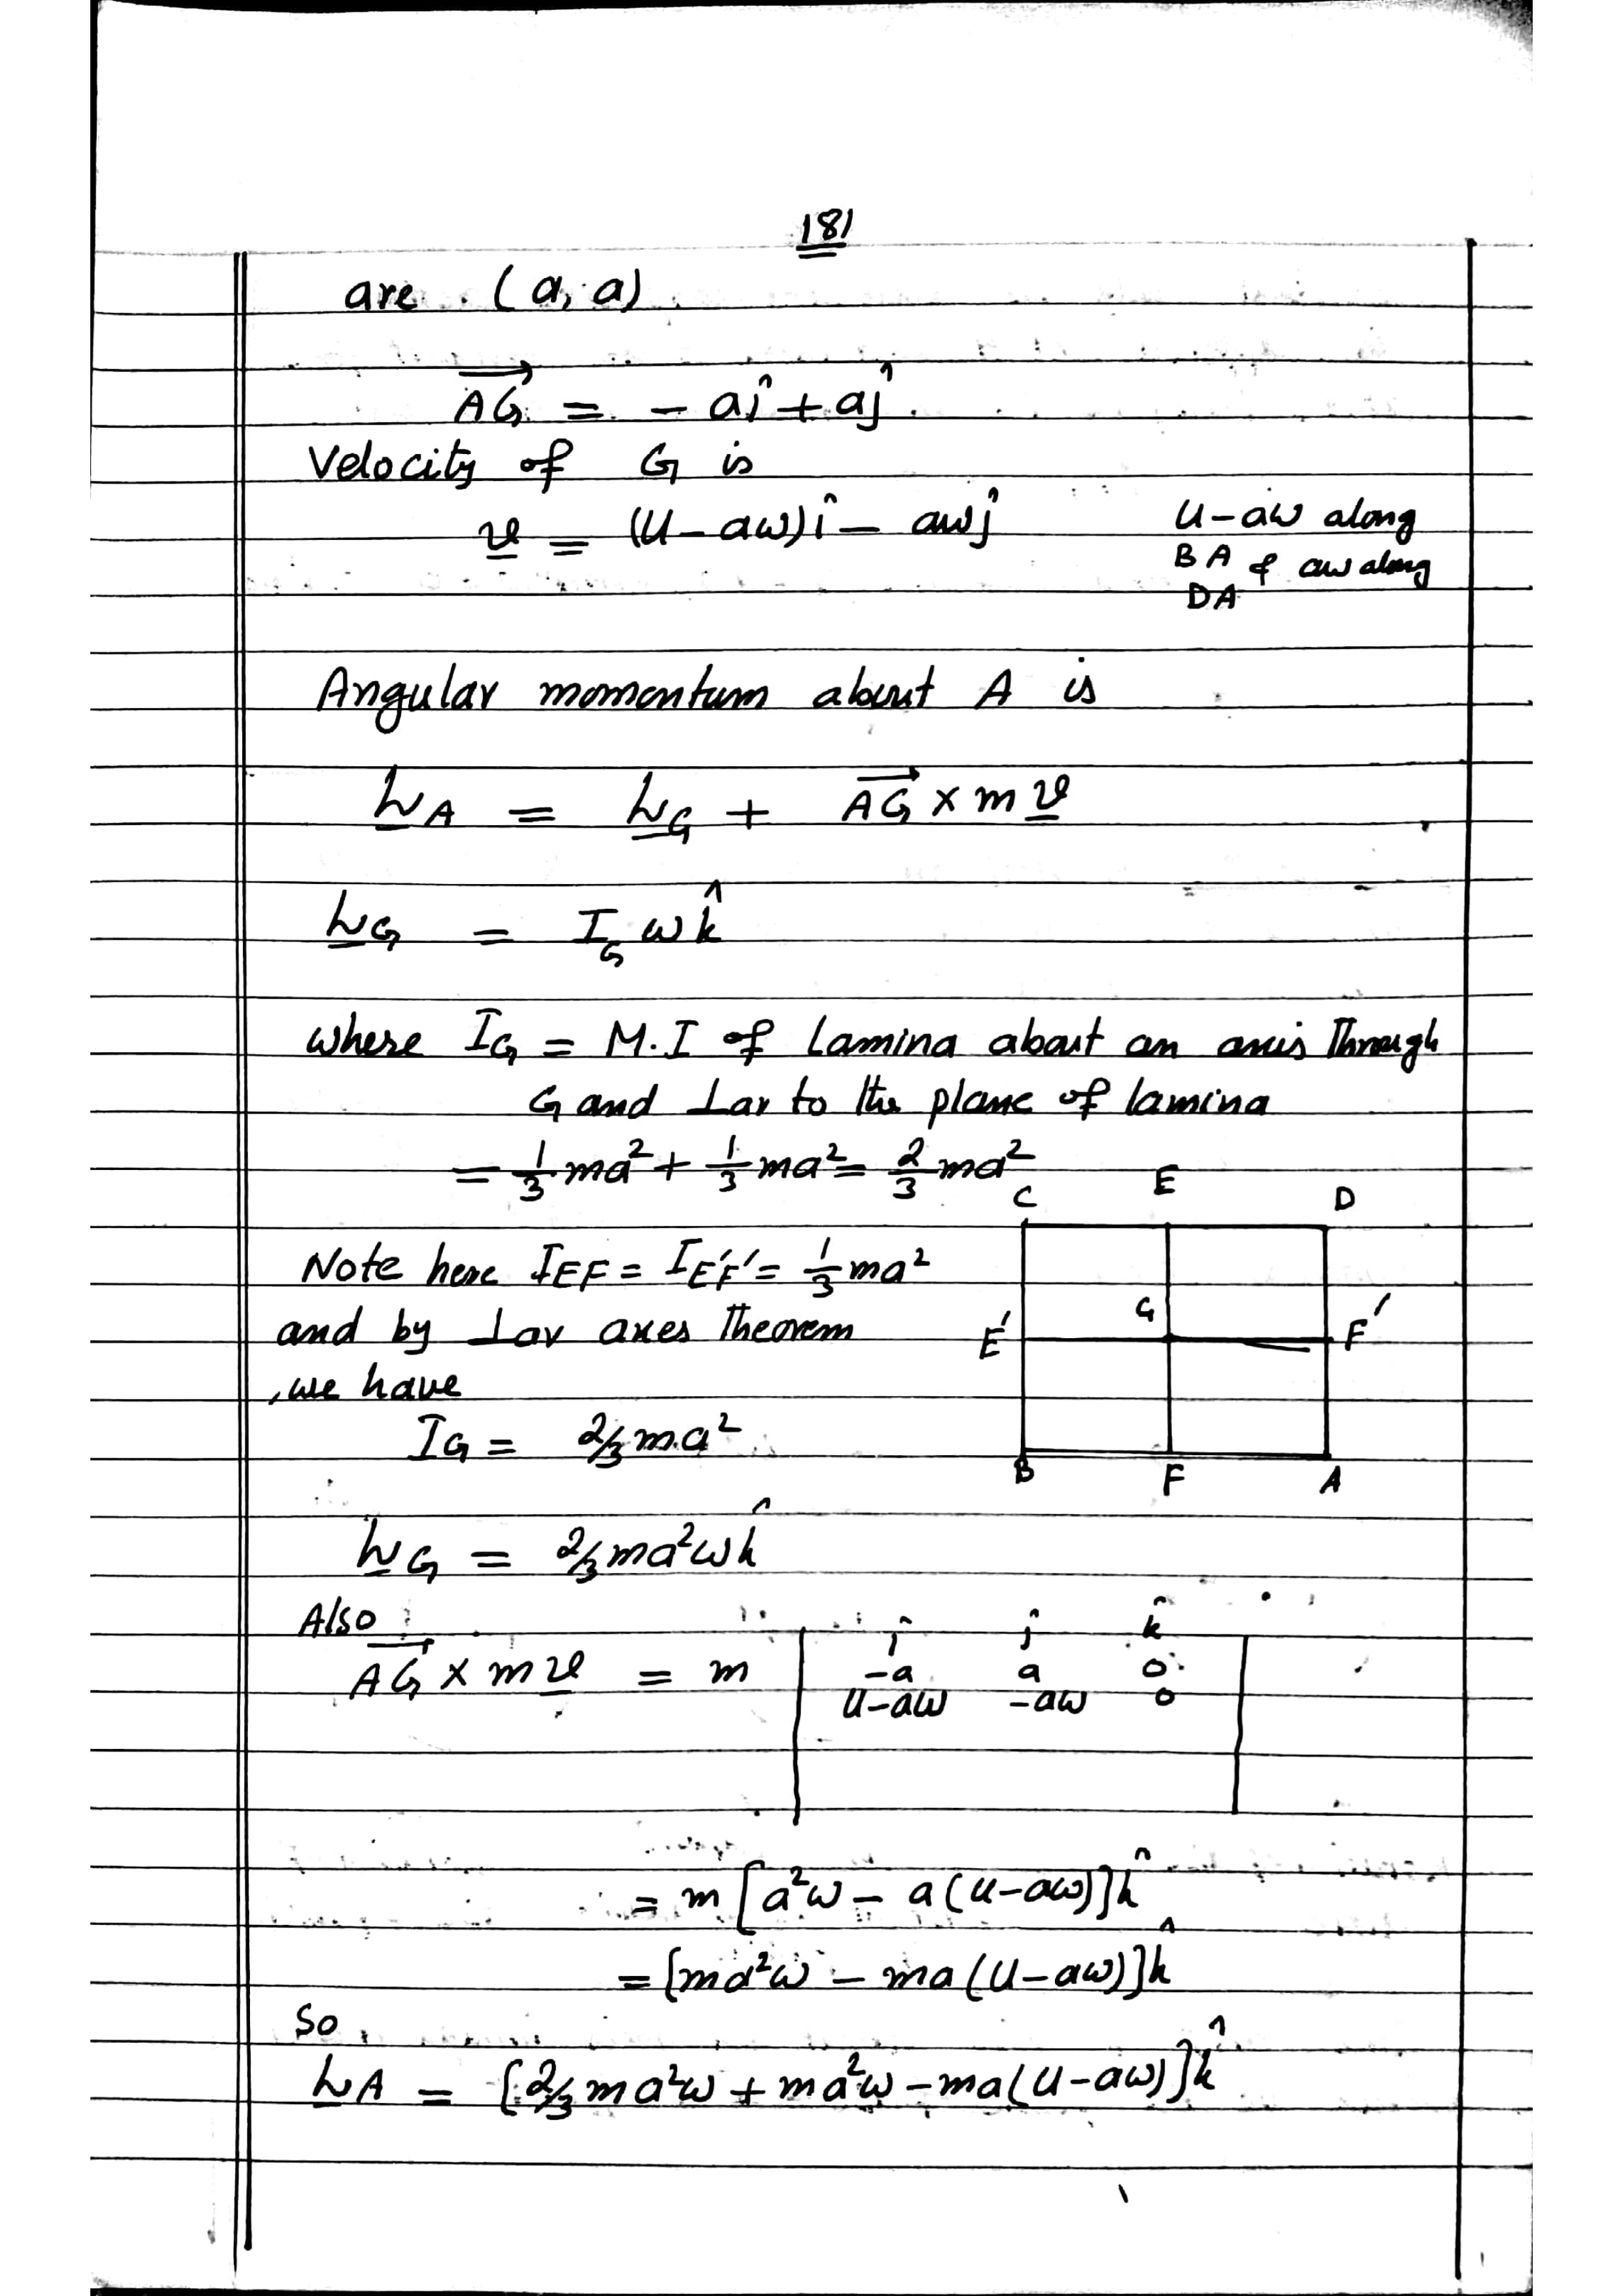 181
are (a, a)
AG⃗ = - aî + aĵ.
Velocity of G is
v = (U-aω)î - aωĵ
U-aω along
BA & aω along
DA
Angular momentum about A is
L_A = L_G + AG⃗ × m v
L_G = I_G ω k̂
where I_G = M.I of lamina about an axis Through
G and ⊥ar to the plane of lamina
= 1/3 ma² + 1/3 ma² = 2/3 ma²
Note here I_EF = I_E'F' = 1/3 ma²
and by ⊥ar axes Theorem
, we have
I_G = 2/3 m.a²
C E D
E' G F'
B F A
L_G = 2/3 ma²ω k̂
Also
AG⃗ × m v = m | î ĵ k̂
-a a 0
U-aω -aω 0 |
= m [a²ω - a(U-aω)] k̂
= [ma²ω - ma(U-aω)] k̂
So
L_A = [2/3 ma²ω + ma²ω - ma(U-aω)] k̂